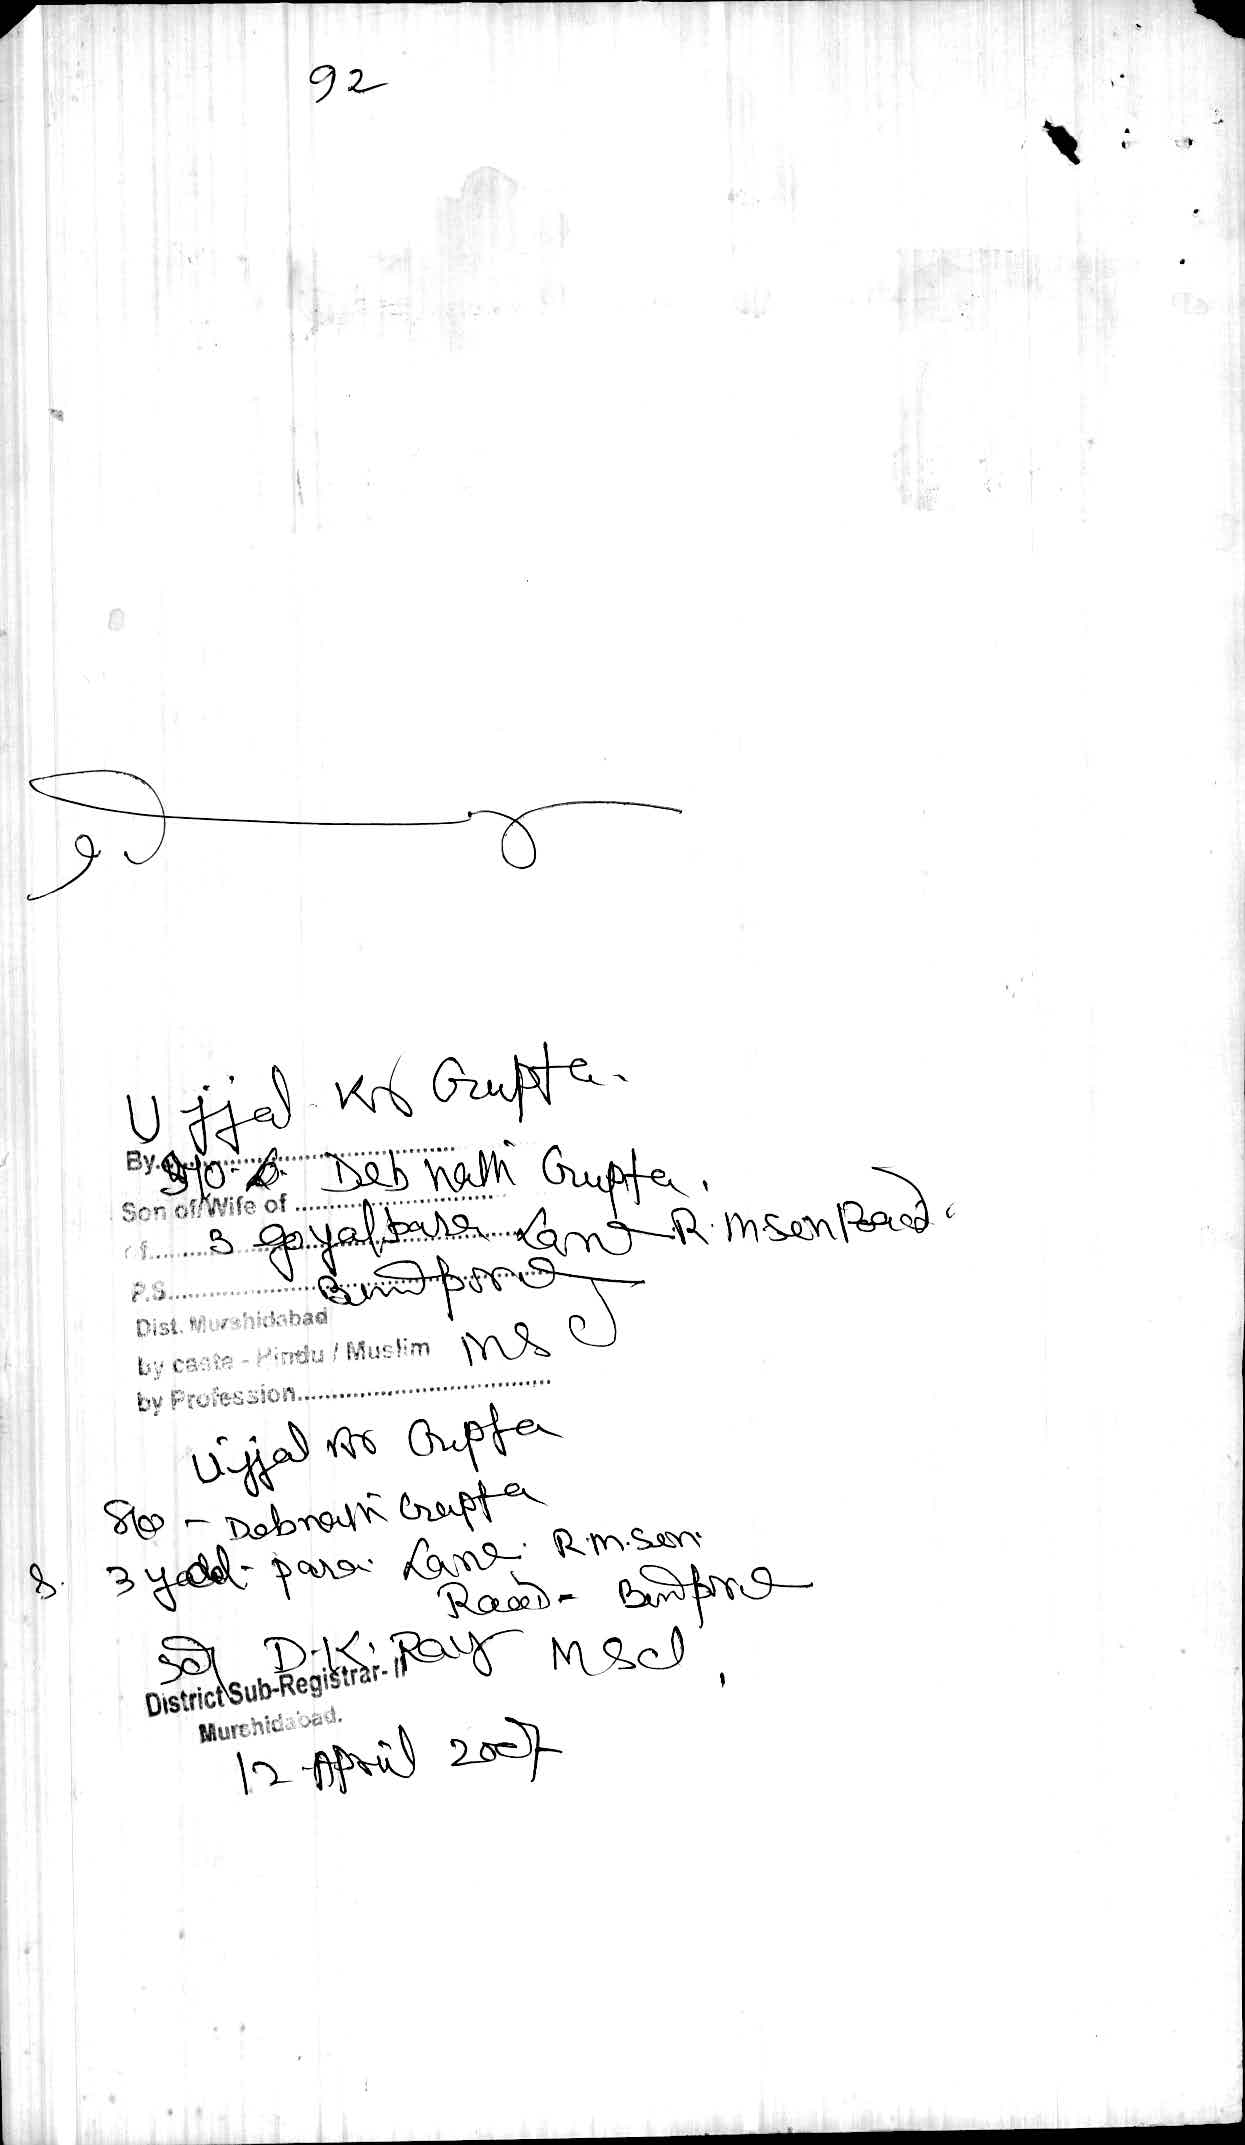 92
Ujjal Kr Gupta.
By.
S/o. Debnath Gupta.
Son of/Wife of
of 3 goyalpara Lane R.M Sen Road.
P.S.
Dist. Murshidabad
by caste - Hindu / Muslim MSd
by Profession
Ujjal Kr Gupta
S/o - Debnath Gupta
3 para Lane. R.M.Sen.
Road -
Sd/ D.K. Ray MSd,
District Sub-Registrar-II
Murshidabad.
12 April 2007